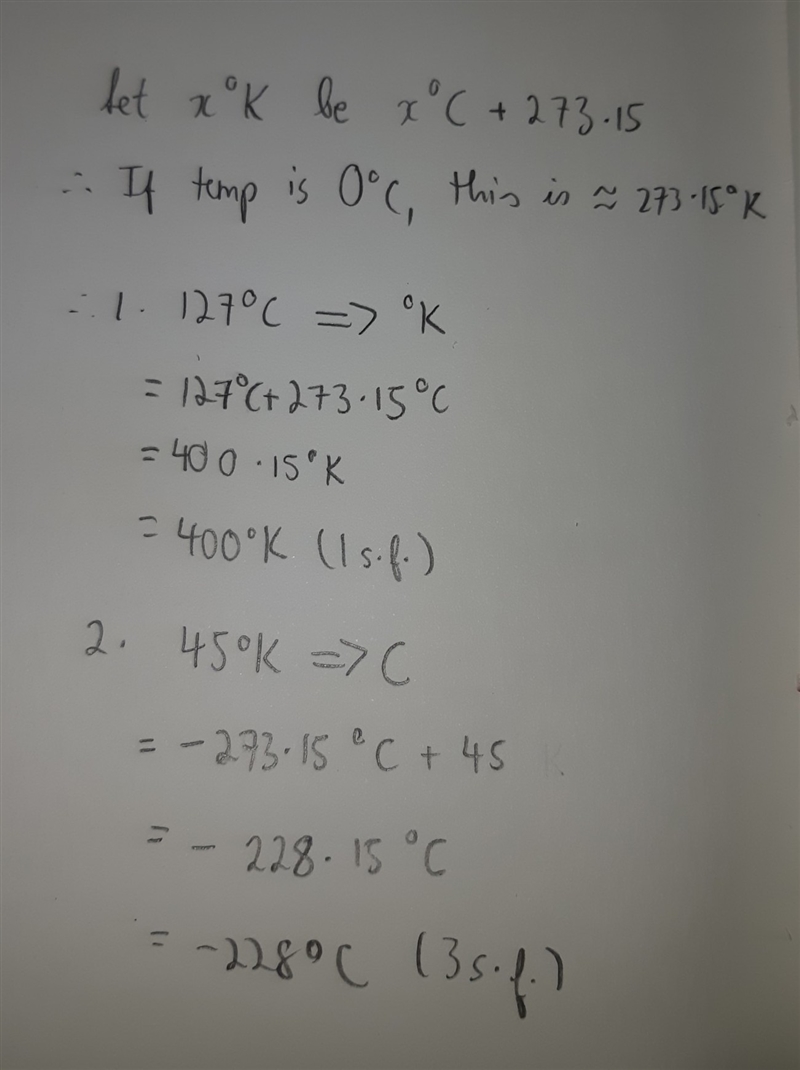 Let x°K be x°C + 273·15
∴ If temp is 0°C, this is ≈ 273·15°K
∴ 1. 127°C => °K
= 127°C+273·15°C
= 400·15°K
= 400°K (1 s.f.)
2. 45°K => C
= -273·15 °C + 45
= - 228·15 °C
= -228°C (3 s.f.)